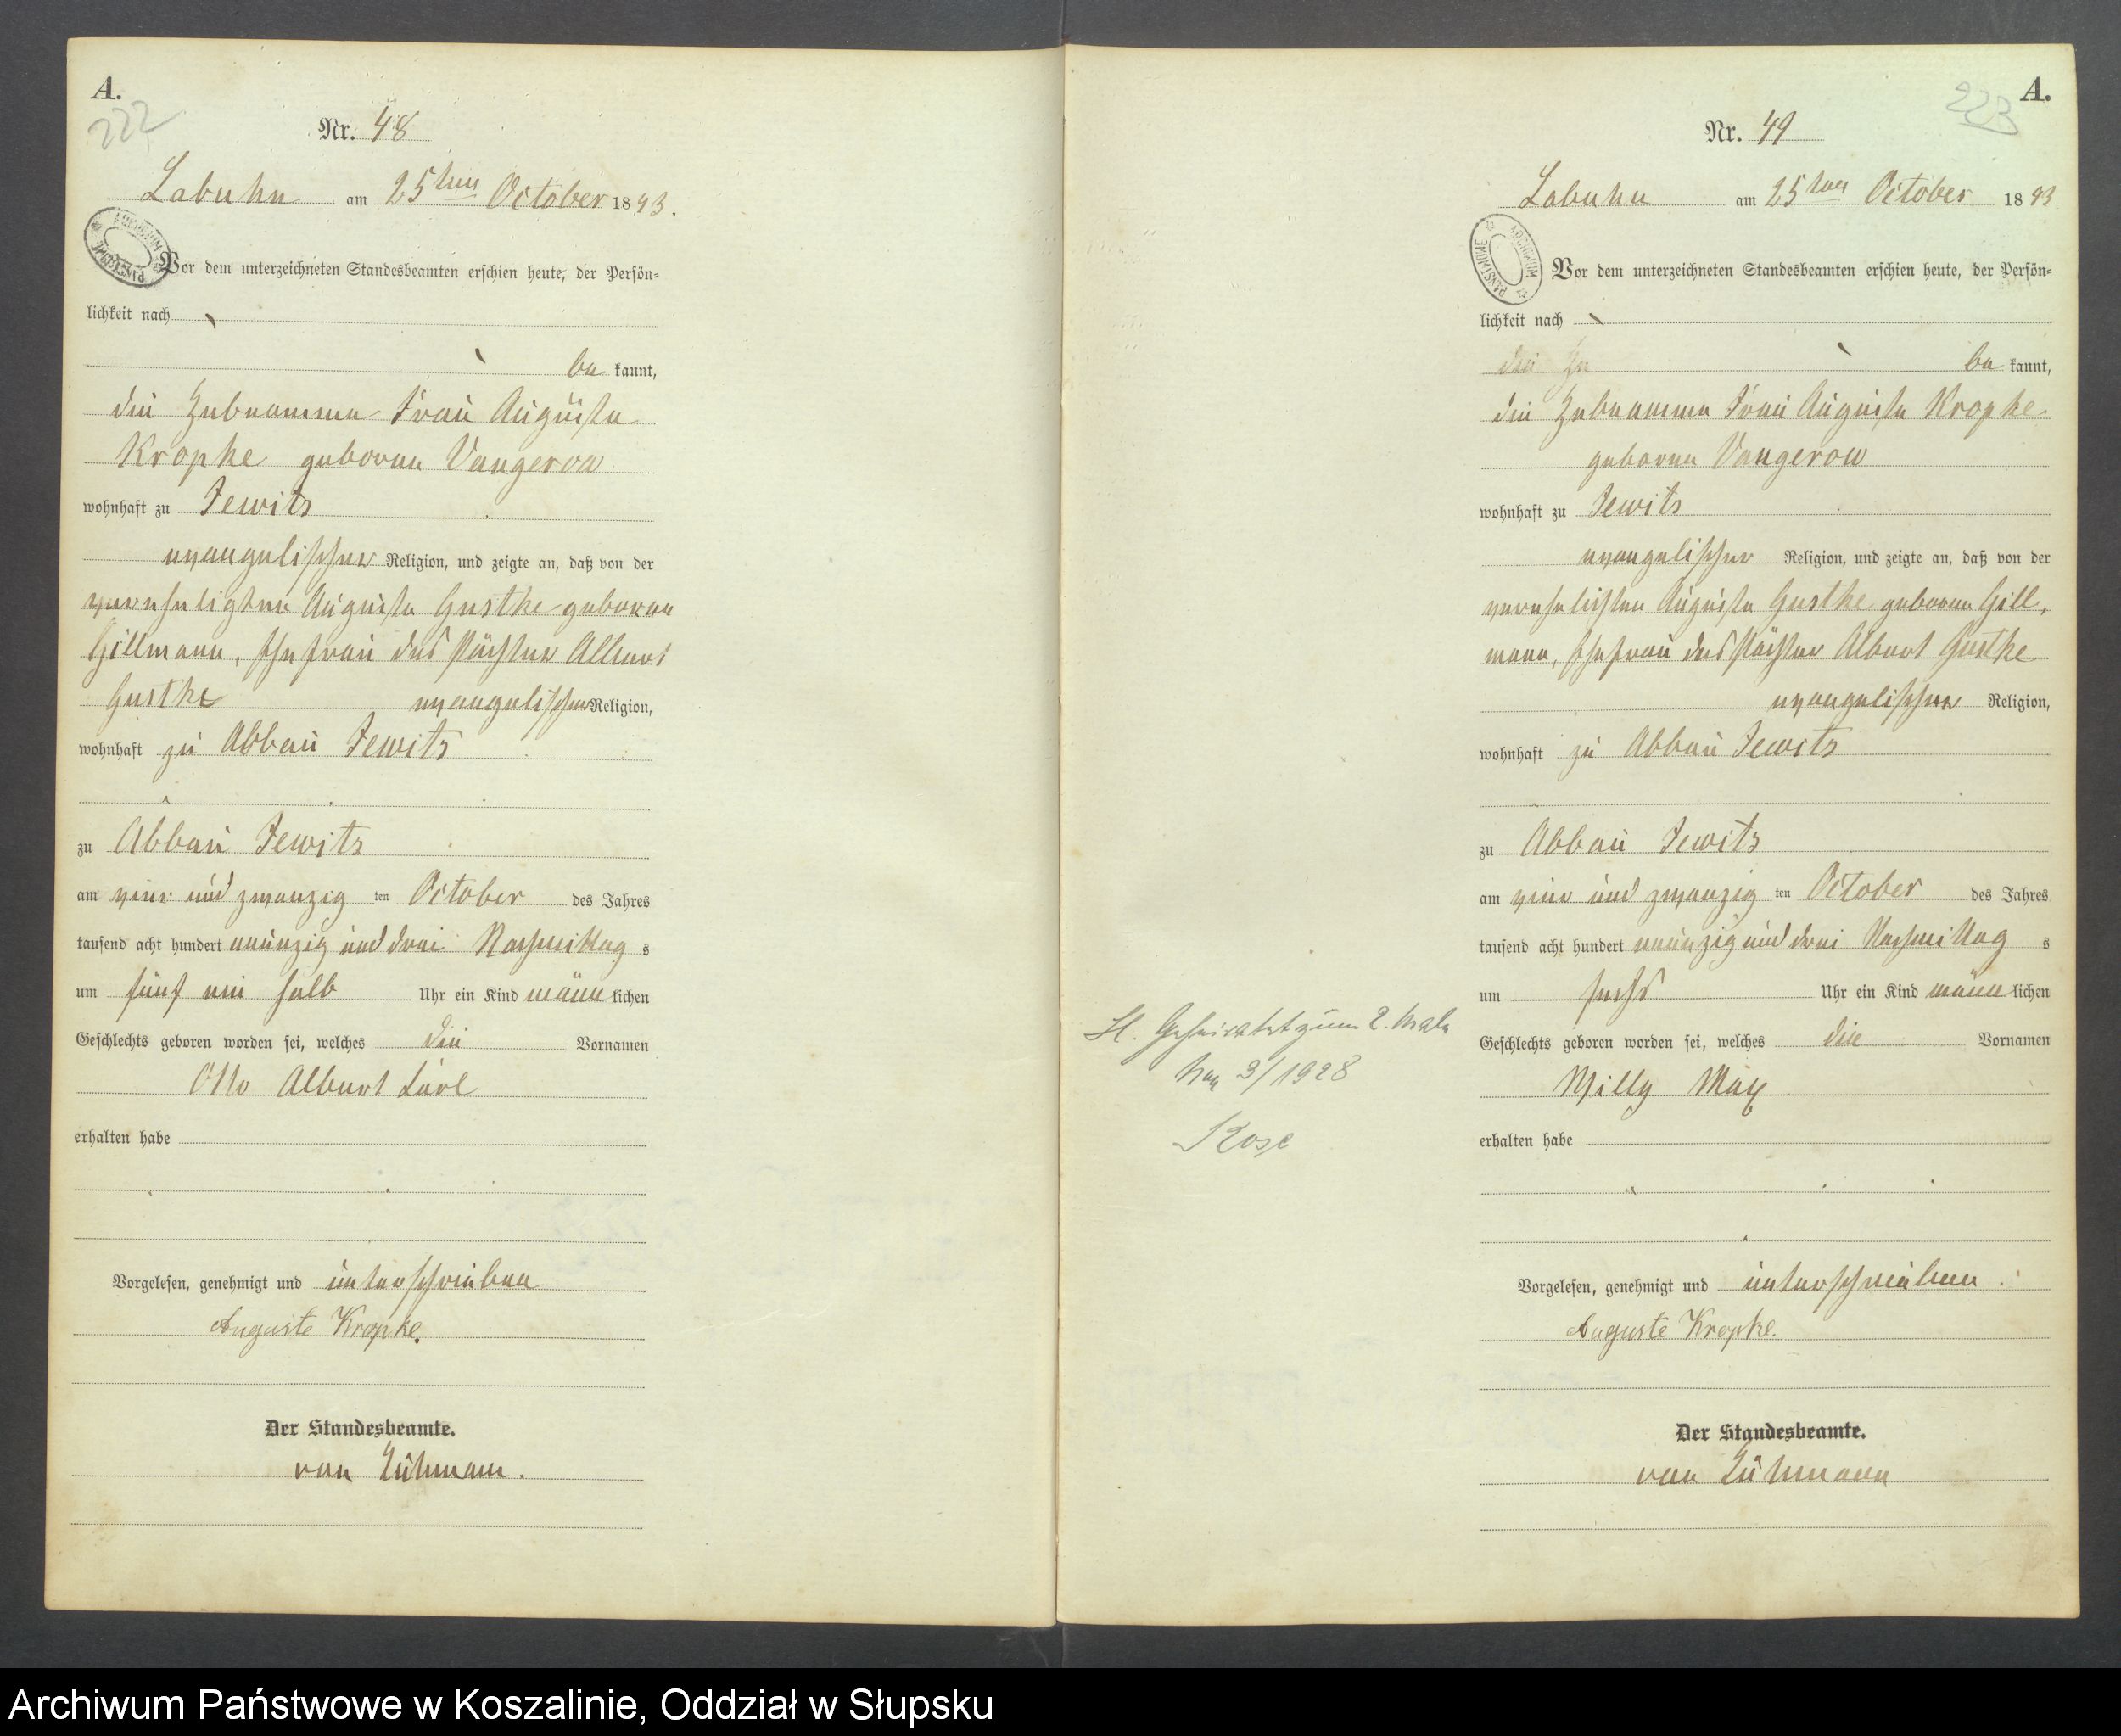 A.
222
Nr. 48
Labuhn am 25ten October 1893.
ARCHIWUM PAŃSTWOWE
Vor dem unterzeichneten Standesbeamten erschien heute, der Persön-
lichkeit nach
be kannt,
die Hebeamme Frau Auguste
Kropke geborne Vangerow
wohnhaft zu Jewitz
evangelischer Religion, und zeigte an, daß von der
verehelichten Auguste Gustke geborne
Hillmann, Ehefrau des Pächter Albert
Gustke evangelischer Religion,
wohnhaft zu Abbau Jewitz
zu Abbau Jewitz
am vier und zwanzig ten October des Jahres
tausend acht hundert neunzig und drei Nachmittag s
um fünf ein halb Uhr ein Kind männ lichen
Geschlechts geboren worden sei, welches die Vornamen
Otto Albert Karl
erhalten habe
Vorgelesen, genehmigt und unterschrieben
Auguste Kropke.
Der Standesbeamte.
von
A.
223
Nr. 49
Labuhn am 25ten October 1893
ARCHIWUM PAŃSTWOWE
Vor dem unterzeichneten Standesbeamten erschien heute, der Persön-
lichkeit nach
die He be kannt,
die Hebeamme Frau Auguste Kropke
geborne Vangerow
wohnhaft zu Jewitz
evangelischer Religion, und zeigte an, daß von der
verehelichten Auguste Gustke geborne Hill,
mann, Ehefrau des Pächter Albert Gustke
evangelischer Religion,
wohnhaft zu Abbau Jewitz
zu Abbau Jewitz
am vier und zwanzig ten October des Jahres
tausend acht hundert neunzig und drei Nachmittag s
um sechs Uhr ein Kind männ lichen
Geschlechts geboren worden sei, welches die Vornamen
Willy Max
erhalten habe
Geheiratet zum 2. Male
3/1928
Kose
Vorgelesen, genehmigt und unterschrieben.
Auguste Kropke.
Der Standesbeamte.
von
Archiwum Państwowe w Koszalinie, Oddział w Słupsku